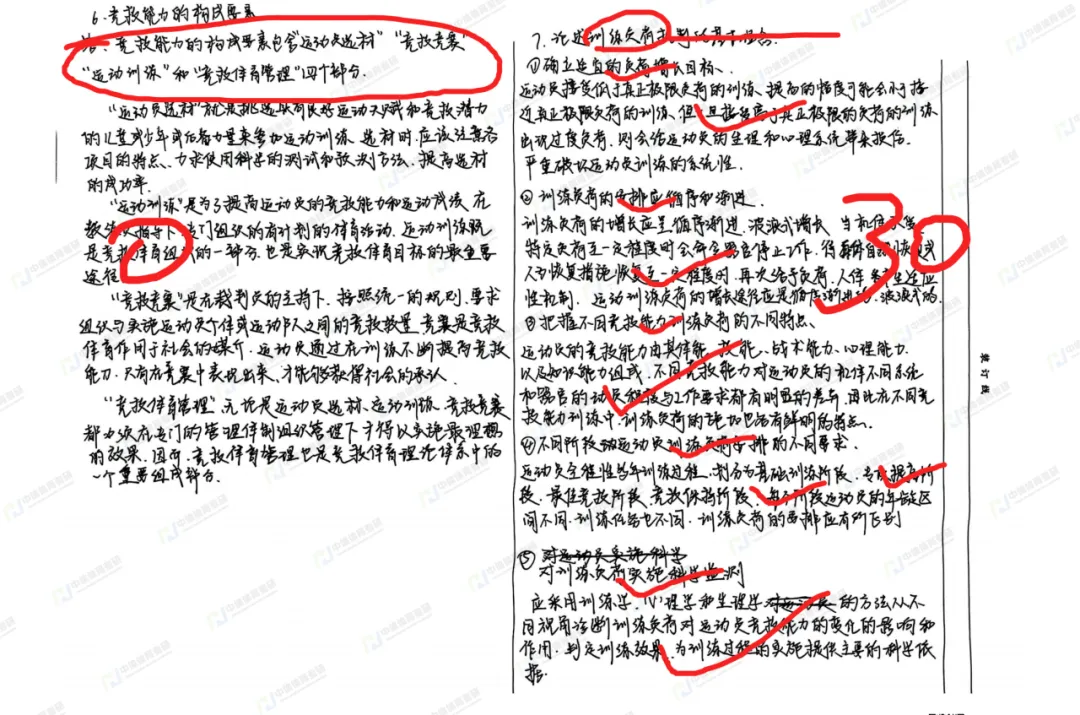 6.竞技能力的构成要素
答:竞技能力的构成要素包含"运动员选材""竞技竞赛"
"运动训练"和"竞技体育管理"四个部分.
"运动员选材"就是挑选具有良好运动天赋和竞技潜力
的儿童或少年或后备力量来参加运动训练.选材时,应该注意各
项目的特点、力求使用科学的测试和预测方法,提高选材
的成功率.
"运动训练"是为了提高运动员的竞技能力和运动成绩,在
教练员指导下,专门组织的有计划的体育活动.运动训练既
是竞技体育组织的一部分,也是实现竞技体育目标的最重要
途径
"竞技竞赛"是在裁判员的主持下,按照统一的规则,要求
组织与实施运动员个体或运动队之间的竞技较量.竞赛是竞技
体育作用于社会的媒介.运动员通过在训练不断提高竞技
能力.只有在竞赛中表现出来、才能够获得社会的承认.
"竞技体育管理",无论是运动员选材、运动训练、竞技竞赛
都必须在专门的管理体制组织管理下才得以实施最理想
的效果.因而,竞技体育管理也是竞技体育理论体系中的
一个重要组成部分.
7.论述训练负荷
①确立适宜的负荷增长目标、
运动员接受低于真正极限负荷的训练,提高的幅度可能会小于接
近真正极限负荷的训练,但一旦接受高于真正极限的负荷的训练
出现过度负荷,则会给运动员的生理和心理系统带来损伤.
严重破坏运动员训练的系统性.
②训练负荷的安排应循序和渐进.
训练负荷的增长应呈循序渐进,波浪式增长.当机体承受
特定负荷至一定程度时会命令器官停止工作,得
人为恢复措施恢复至一定程度时,再次给予负荷,人体产生适应
性机制.运动训练负荷的增长途径应是循序渐进的,波浪式的.
③把握不同竞技能力训练负荷的不同特点、
运动员的竞技能力由其体能、技能、战术能力、心理能力
以及知识能力组成,不同竞技能力对运动员的机体不同系统
和器官的动员程度与工作要求都有明显的差异,因此在不同竞
技能力训练中,训练负荷的施加也各有鲜明的特点.
④不同阶段运动员训练负荷安排的不同要求.
运动员全程性多年训练过程,划分为基础训练阶段、专项提高阶
段、最佳竞技阶段、竞技保持阶段、每个阶段运动员的年龄区
间不同.训练任务也不同.训练负荷的安排应有所区别
⑤对运动员实施科学
对训练负荷实施科学监测
应采用训练学、心理学和生理学的方法从不
同视角诊断训练负荷对运动员竞技能力的变化的影响和
作用.判定训练效果,为训练过程的实施提供主要的科学依
据.
3
装订线